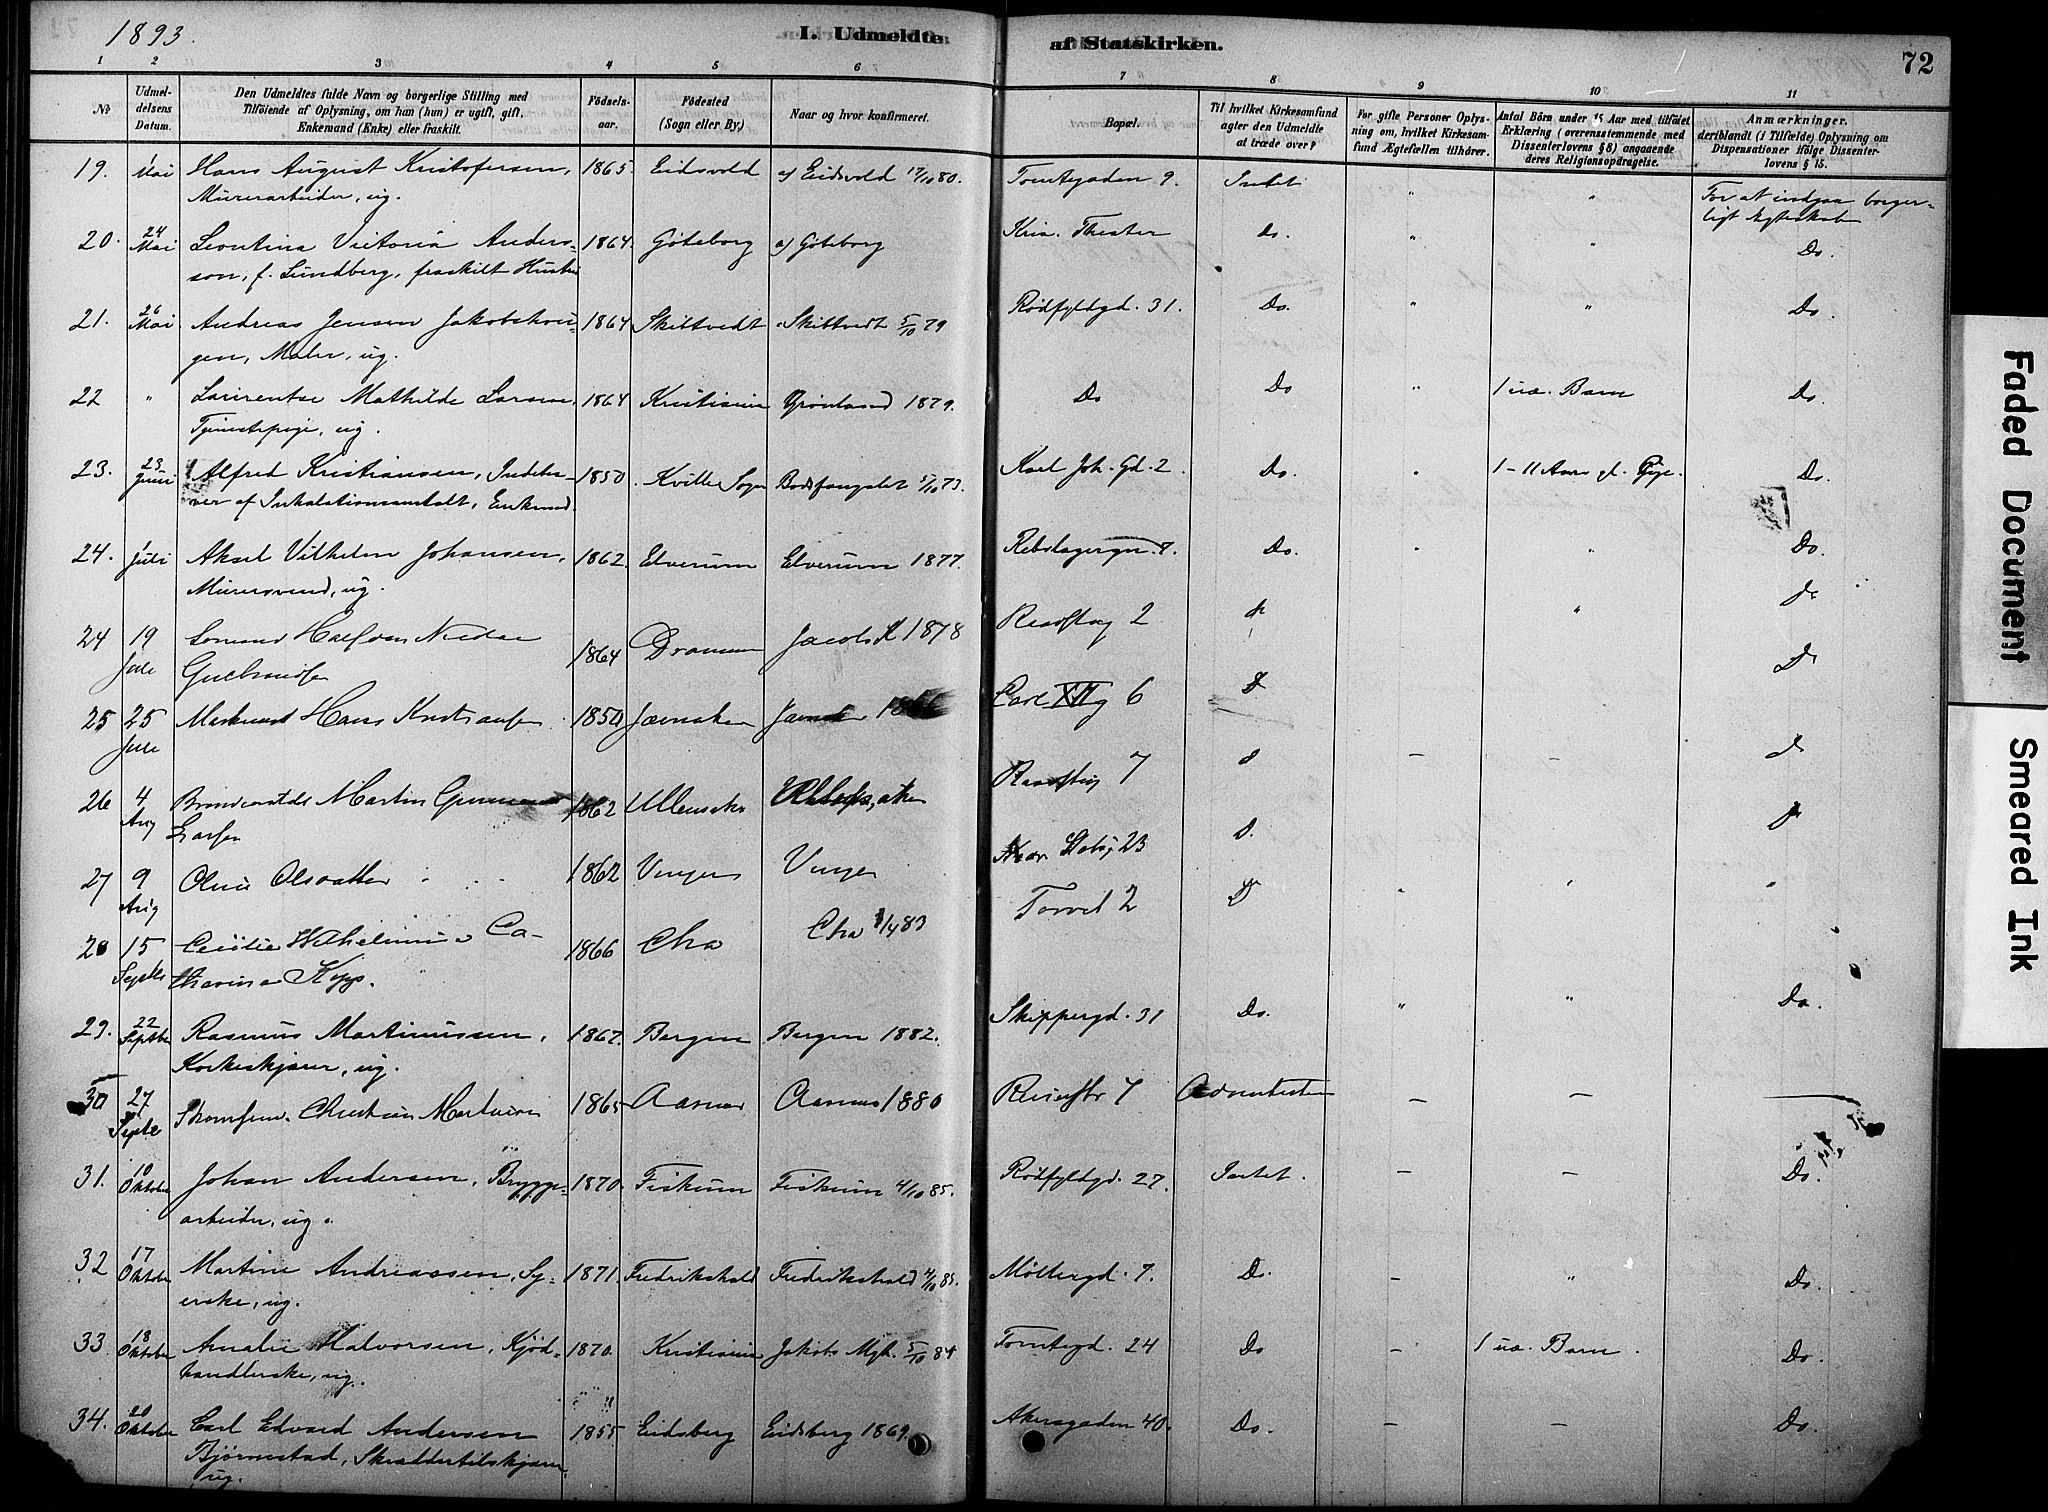 1893.
I. Udmeldte
af Statskirken.
72
1 2 3 4 5 6 7 8 9 10 11
No
Udmel-
delsens
Datum.
Den Udmeldtes fulde Navn og borgerlige Stilling med
Tilföiende af Oplysning, om han (hun) er ugift, gift,
Enkemand (Enke) eller fraskilt.
Födsels-
aar.
Födested
(Sogn eller By.)
Naar og hvor konfirmeret.
Bopæl.
Til hvilket Kirkesamfund
agter den Udmeldte
at træde over?
For gifte Personer Oplys-
ning om, hvilket Kirkesam-
fund Ægtefællen tilhörer.
Antal Börn under 15 Aar med tilföiet
Erklæring (overensstemmende med
Dissenterlovens § 8) angaaende
deres Religionsopdragelse.
Anmærkninger.
deriblandt (i Tilfælde) Oplysning om
Dispensationer ifölge Dissenter-
lovens § 15.
19. 1 Mai Hans August Kristofersen, 1865. Eidsvold af Eidsvold 17/10 80. Tomtegaden 9. Intet " " For at indgaa borger-
Murerarbeider, ug. ligt Ægteskab
20. 24 Mai Leontina Victoria Anders- 1864. Göteborg af Göteborg Kria. Theater do. " " Do.
son, f. Lundberg, fraskilt Hustru
21. 26 Mai Andreas Jensen Jakobshau- 1864 Skiltvedt Skiltvedt 5/10 79 Rødfyldgd. 31. Do. " " Do.
gen, Maler, ug.
22 " Laurentse Mathilde Larsen, 1864 Kristiania Grönland 1879. Do Do " 1 uæ. Barn Do.
Tjenestepige, ug.
23. 23 Juni Alfred Kristiansen, Indeha- 1850. Kville Sogn Bodsfængslet 5/10 73. Karl Joh. Gd. 2. Do. " 1 - 11 Aars gl. Pige. Do.
ver af Inhalationsanstalt, Enkemand.
24. 1 Juli Aksel Vilhelm Johansen, 1862. Elverum Elverum 1877. Rebslagergn. 8. Do. " " Do.
Murersvend, ug.
24 19 Jule Halfdan 1864 Drammen Jacobs K 1878 2 "
25 25 Jule Hans Kristiansen 1850 Jævnaker Carl XII g 6
26 4 Aug Martin 1862 Ullensaker 7 - -
Larsen
27 9 Aug Oline Olsdatter 1862 Vinger Vinger 23
28 15 Septbr Cecilie Wilhelmine Ca- 1866 Chra Chra 1/4 83 Torvet 2
tharina Kopp.
29. 22 Septbr Rasmus Martinussen, 1867. Bergen Bergen 1882. Skippergd. 31 Do. " " Do.
Korkeskjærer, ug.
30 27 Septe Christian 1865 Aasnes Aasnes 1880 7 Adventisten - -
31. 10 Oktober Johan Andersen, Brygge- 1870. Fiskum Fiskum 4/10 85. Rødfyldgd. 27. Intet. - - Do.
arbeider, ug.
32 17 Oktober Martine Andreassen, Sy- 1871. Fredrikshald Fredrikshald 4/10 85. Möllergd. 7. Do. - " Do.
erske, ug.
33 18 Oktober Amalie Halvorsen, Kjöd- 1870. Kristiania Jakobs Mgh. 5/10 84 Tomtegd. 24 Do - 1 uæ. Barn. Do.
handlerske, ug.
34. 20 Oktober Carl Edvard Andersen 1855 Eidsberg Eidsberg 1869. Akersgaden 40. Do. - - Do.
Bjørnestad, Skræddertilskjærer,
ug.
Faded Document
Smeared Ink